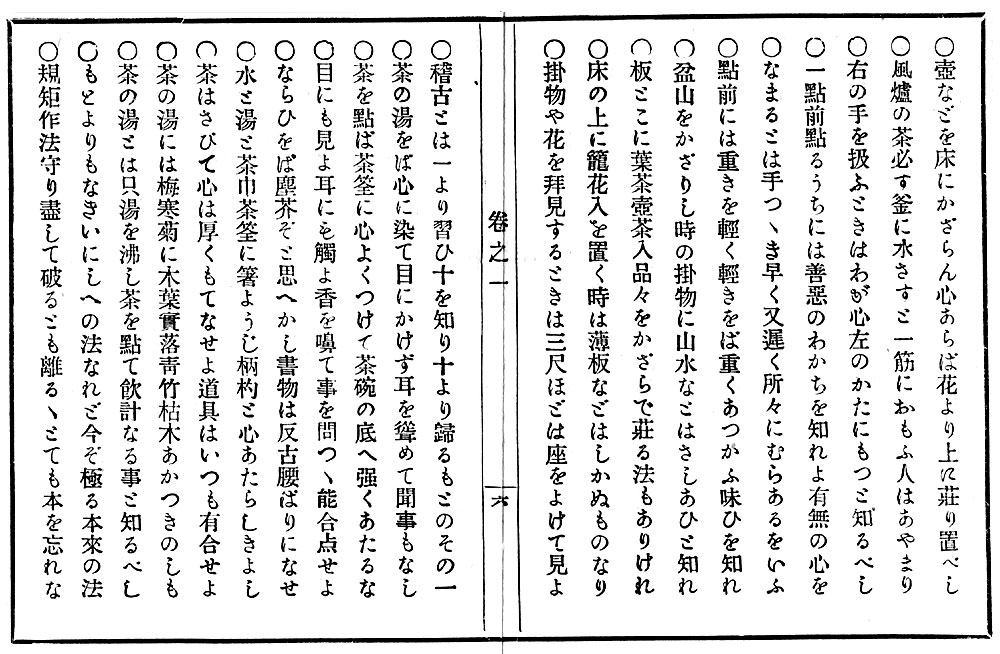 〇壺などを床にかざらん心あらば花より上に莊り置べし
〇風爐の茶必す釜に水さすと一筋におもふ人はあやまり
〇右の手を扱ふときはわが心左のかたにもつと知るべし
〇一點前點るうちには善惡のわかちを知れよ有無の心を
〇なまるとは手つヽき早く又遲く所々にむらあるをいふ
〇點前には重きを輕く輕きをば重くあつかふ味ひを知れ
〇盆山をかざりし時の掛物に山水などはさしあひと知れ
〇板とこに葉茶壺茶入品々をかざらで莊る法もありけれ
〇床の上に籠花入を置く時は薄板などはしかぬものなり
〇掛物や花を拜見するときは三尺ほどは座をよけて見よ
卷之一
六
〇稽古とは一より習ひ十を知り十より歸るもとのその一
〇茶の湯をば心に染て目にかけず耳を聳めて聞事もなし
〇茶を點ば茶筌に心よくつけて茶碗の底へ强くあたるな
〇目にも見よ耳にも觸よ香を嗅て事を問つヽ能合点せよ
〇ならひをば塵芥ぞと思へかし書物は反古腰ばりになせ
〇水と湯と茶巾茶筌に箸ようじ柄杓と心あたらしきよし
〇茶はさびて心は厚くもてなせよ道具はいつも有合せよ
〇茶の湯には梅寒菊に木葉實落靑竹枯木あかつきのしも
〇茶の湯とは只湯を沸し茶を點て飮計なる事と知るべし
〇もとよりもなきいにしへの法なれど今ぞ極る本來の法
〇規矩作法守り盡して破るとも離るヽとても本を忘れな